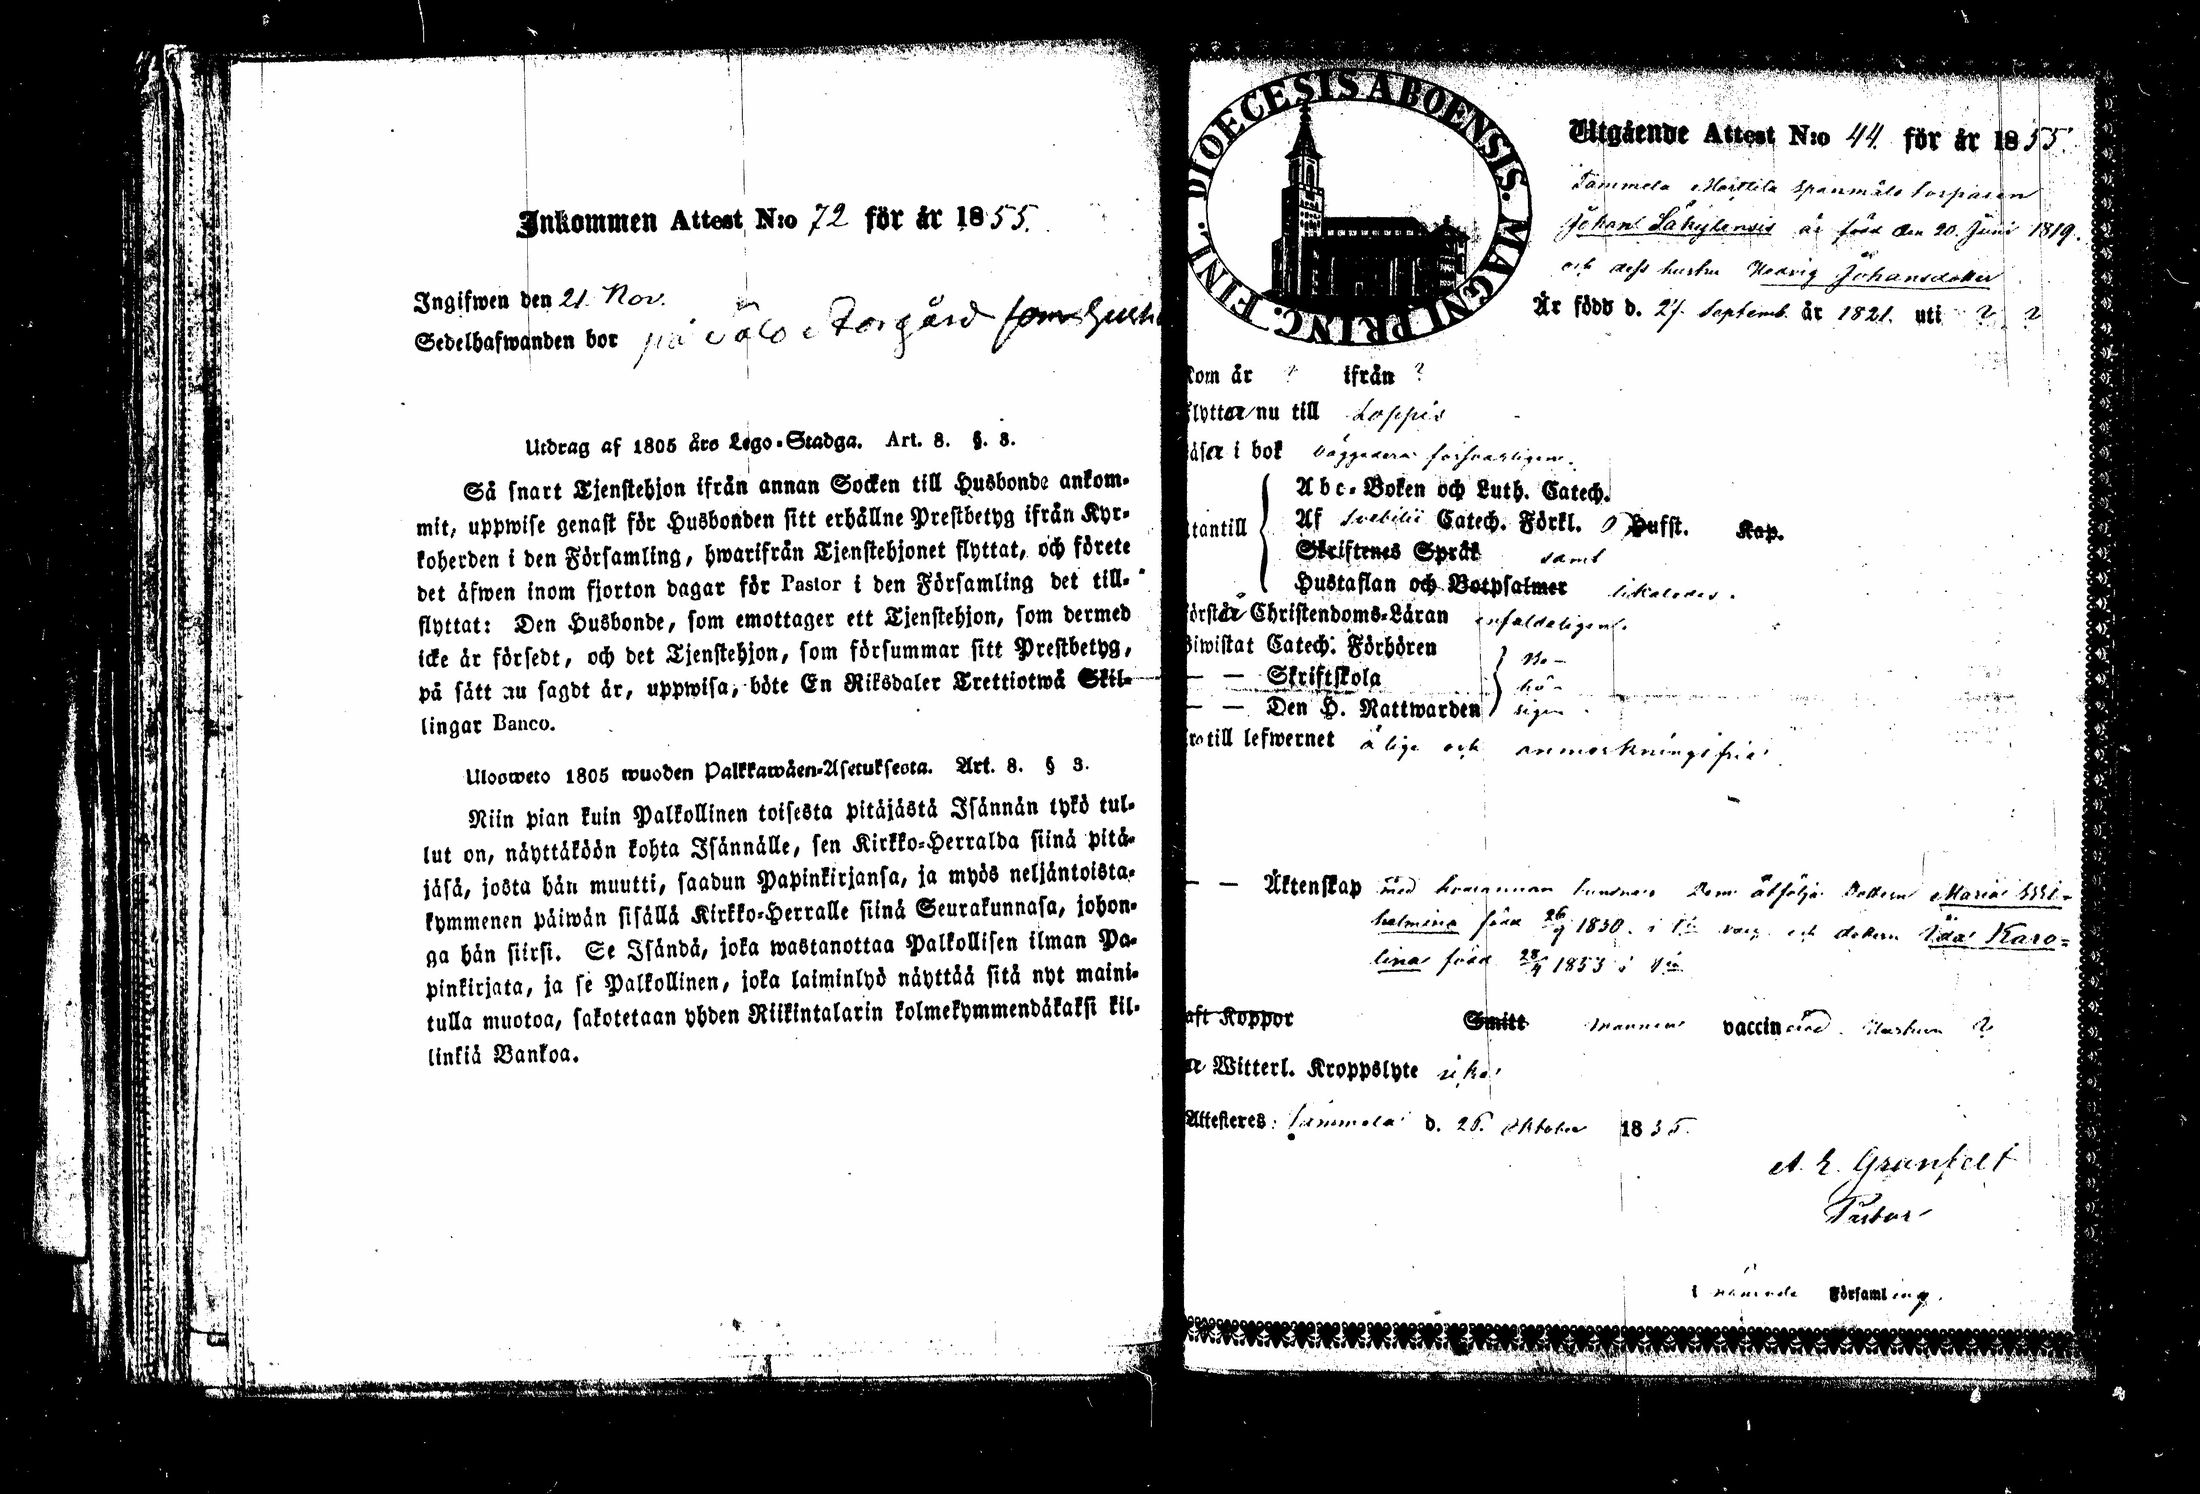 Inkommen Attest N:o 72 för år 1855.
Ingifwen den 21. Nov.
Sedelhafwanden bor på Storgård
Utdrag af 1805 års Lego-Stadga. Art. 8. §. 3.
Så snart Tjenstehjon ifrån annan Socken till Husbonde ankom-
mit, uppwise genast för Husbonden sitt erhållne Prestbetyg ifrån Kyr-
koherden i den Församling, hwarifrån Tjenstehjonet flyttat, och förete
det äfwen inom fjorton dagar för Pastor i den Församling det till-
flyttat: Den Husbonde, som emottager ett Tjenstehjon, som dermed
icke är försedt, och det Tjenstehjon, som försummar sitt Prestbetyg,
på sätt nu sagdt är, uppwisa, böte En Riksdaler Trettiotwå Skil-
lingar Banco.
Ulosweto 1805 wuoden Palkkawäen-Asetuksesta. Art. 8. § 3.
Niin pian kuin Palkollinen toisesta pitäjästä Isännän tykö tul-
lut on, näyttäköön kohta Isännälle, sen Kirkko-Herralda siinä pitä-
jäsä, josta hän muutti, saadun Papinkirjansa, ja myös neljäntoista-
kymmenen päiwän sisällä Kirkko-Herralle siinä Seurakunnasa, johon-
ga hän siirsi. Se Isändä, joka wastanottaa Palkollisen ilman Pa-
pinkirjata, ja se Palkollinen, joka laiminlyö näyttää sitä nyt maini-
tulla muotoa, sakotetaan yhden Riikintalarin kolmekymmendäkaksi kil-
linkiä Bankoa.
DIOECESIS ABOENSIS. MAGNI PRINC. FINL.
Utgående Attest N:o 44. för år 1855.
Tammela Marttila torparen
Johan Säkylensis är född den 20. Juni 1819.
och dess hustru Hedvig Johansdotter
Är född d. 27. Septemb. år 1821. uti ? ?
kom år ? ifrån ?
flytter nu till Loppis
läser i bok försvarligen.
Utantill
Abc-Boken och Luth. Catech.
Af Svebilii Catech. Förkl. Hufst. Kap.
Skriftenes Språk samt
Hustaflan och Botpsalmer likaledes.
Förstår Christendoms-Läran enfaldeligen.
Biwistat Catech. Förhören
— — Skriftskola
— — Den H. Nattwarden
till lefwernet ärlige och anmerkningsfria
— — Äktenskap med hvarannan Dem åtfölja Maria Wil-
helmina född 26/9 1850. och dottren Ida Karo-
lina född 28/4 1853
haft Koppor Smitt mannen vaccinerad. Hustrun ?
Witterl. Kroppslyte icke
Attesteres: Tammela d. 26. Oktober 1855.
A. E. Granfelt
Pastor
i nämnde Församling.